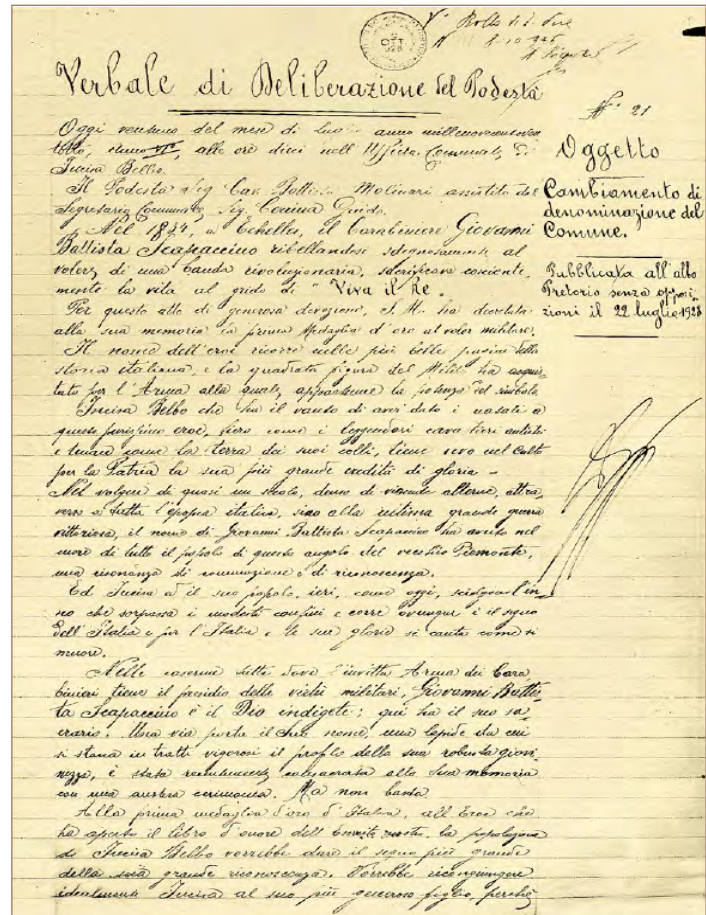 OTT
Verbale di Deliberazione del Podestà
N° 21
Oggi ventuno del mese di anno millenovecentoven
totto, anno VI°, alle ore dieci nell'Ufficio Comunale di
Incisa Belbo.
Il Podestà Sig. Cav. Molinari assistito del
Segretario Comunale, Sig. Guido.
Nel 1834, a Echelles, il Carabiniere Giovanni
Battista Scapaccino ribellandosi sdegnosamente al
volere di una banda rivoluzionaria, sacrificava cosciente
mente la vita al grido di "Viva il Re.
Per questo atto di generosa devozione, S. M. ha decretata
alla sua memoria la prima Medaglia d'oro al valor militare.
Il nome dell'eroe ricorre nelle più belle pagine della
storia italiana, e la quadrata figura del Milite ha acquis
tato per l'Arma alla quale appartenne la potenza del simbolo.
Incisa Belbo che ha il vanto di aver dato i natali a
questo purissimo eroe, fiero come i leggendari cavalieri antichi
e tenace come la terra dei suoi colli, tiene vivo nel Culto
per la Patria la sua più grande eredità di gloria -
Nel volgere di quasi un secolo, denso di vicende alterne, attra
verso a tutta l'epopea italica, sino alla ultima grande guerra
vittoriosa, il nome di Giovanni Battista Scapaccino ha avuto nel
cuore di tutto il popolo di questo angolo del vecchio Piemonte,
una risonanza di commozione e di riconoscenza.
Ed Incisa ed il suo popolo, ieri, come oggi, sciolgono l'in
no che sorpassa i modesti confini e corre ovunque è il segno
dell'Italia e per l'Italia e le sue glorie si canta come si
muore.
Nelle caserme tutte dove l'invitta Arma dei Cara
binieri tiene il presidio delle virtù militari, Giovanni Battis
ta Scapaccino è il Dio indigete; qui ha il suo sa
crario. Una via porta il suo nome, una lapide da cui
si stacca in tratti vigorosi il profilo della sua robusta giovi
nezza, è stata recentemente consacrata alla Sua memoria
con una austera cerimonia. Ma non basta
Alla prima medaglia d'oro d'Italia, all'Eroe che
ha aperto il libro d'onore dell'Esercito nostro, la popolazione
di Incisa Belbo vorrebbe dare il segno più grande
della sua grande riconoscenza. Vorrebbe ricongiungere
idealmente Incisa al suo più generoso figlio, perché
Oggetto
Cambiamento di
denominazione del
Comune.
Pubblicata all'albo
Pretorio senza opposi
zioni il 22 luglio 1928